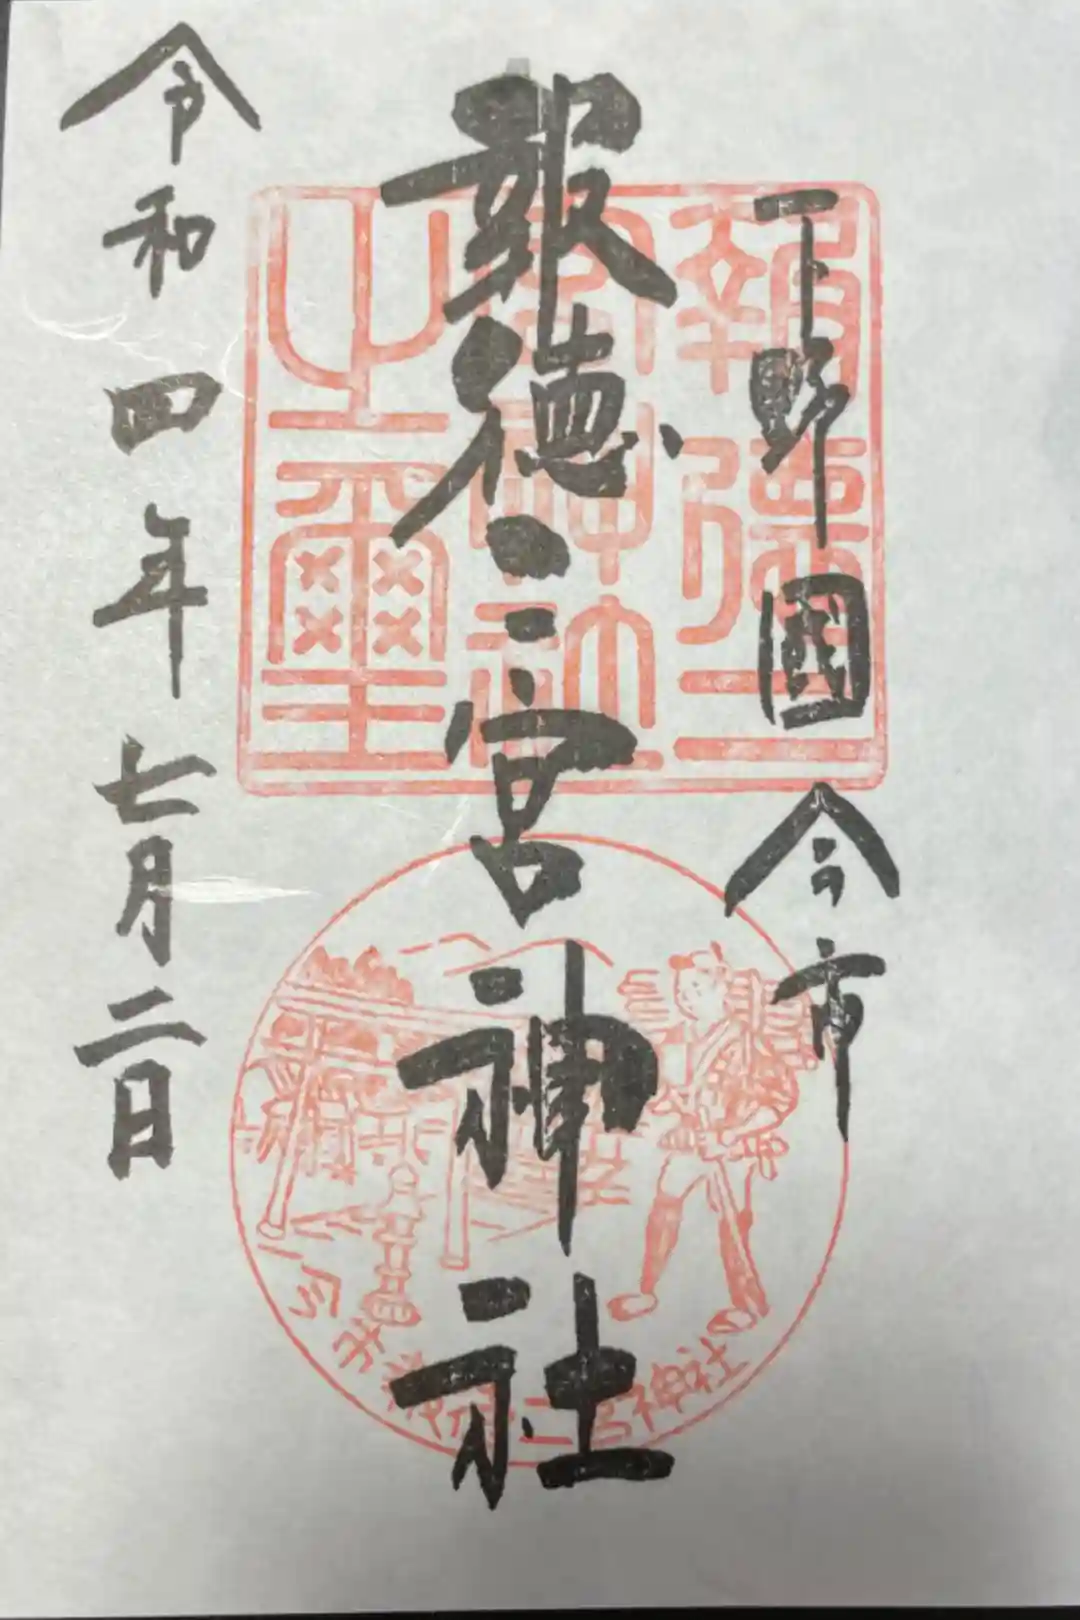 下野國 今市
報徳二宮神社
令和四年七月二日
報徳二
宮神社
之璽
今市報徳二宮神社